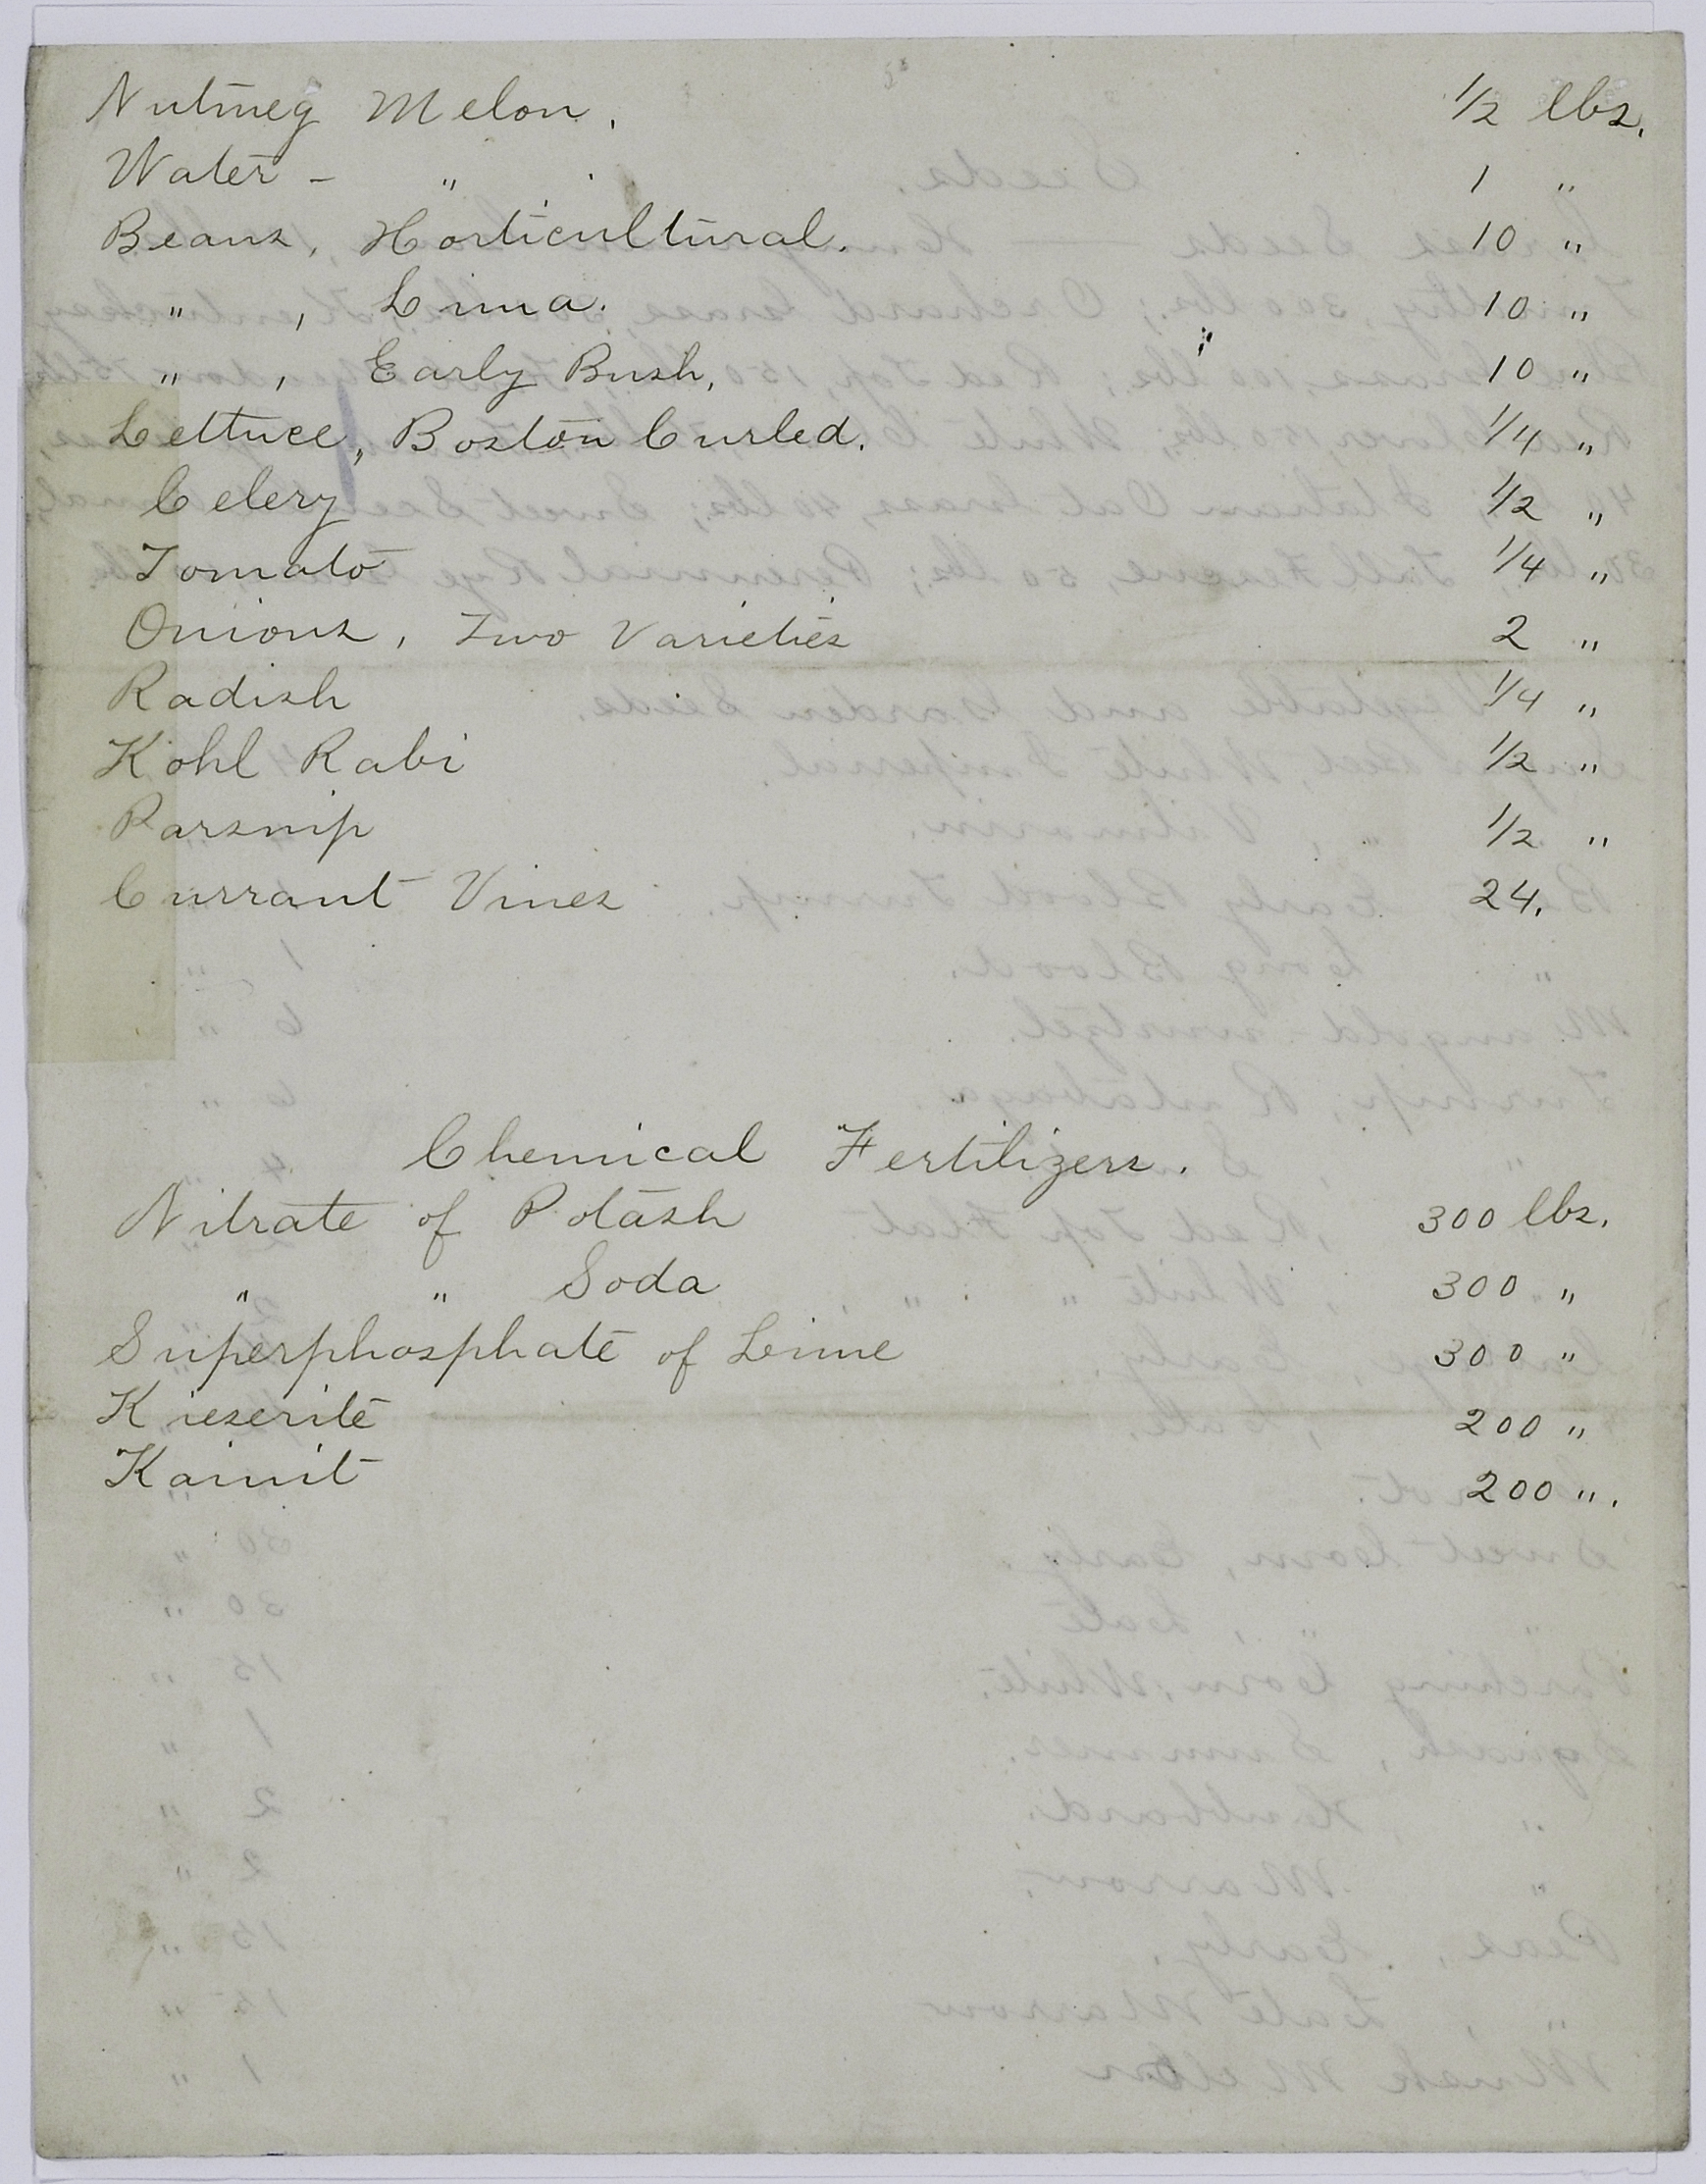 Nutmeg Melon. 1/2 lbs.
Water - " . 1 "
Beans, Horticultural. 10 "
" , Lima. 10 "
" , Early Bush, 10 "
Lettuce, Boston Curled. 1/4 "
Celery 1/2 "
Tomato 1/4 "
Onions, Two Varieties 2 "
Radish 1/4 "
Kohl Rabi 1/2 "
Parsnip 1/2 "
Currant Vines 24.
Chemical Fertilizers.
Nitrate of Potash 300 lbs.
" " Soda 300 "
Superphosphate of Lime 300 "
Kieserite 200 "
Kainit 200 ".